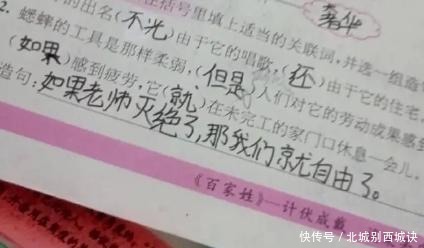 奢华
住括号里填上适当的关联词,并选一组造
2. 蟋蟀的出名(不光)由于它的唱歌,(还)由于它的住宅。
的工具是那样柔弱,(但是)人们对它的劳动成果感到
(如果)感到疲劳,它(就)在未完工的家门口休息一会儿。
造句:如果老师灭绝了,那我们就自由了。
《百家姓》一计伏成戴
快传号/北城别西城诀